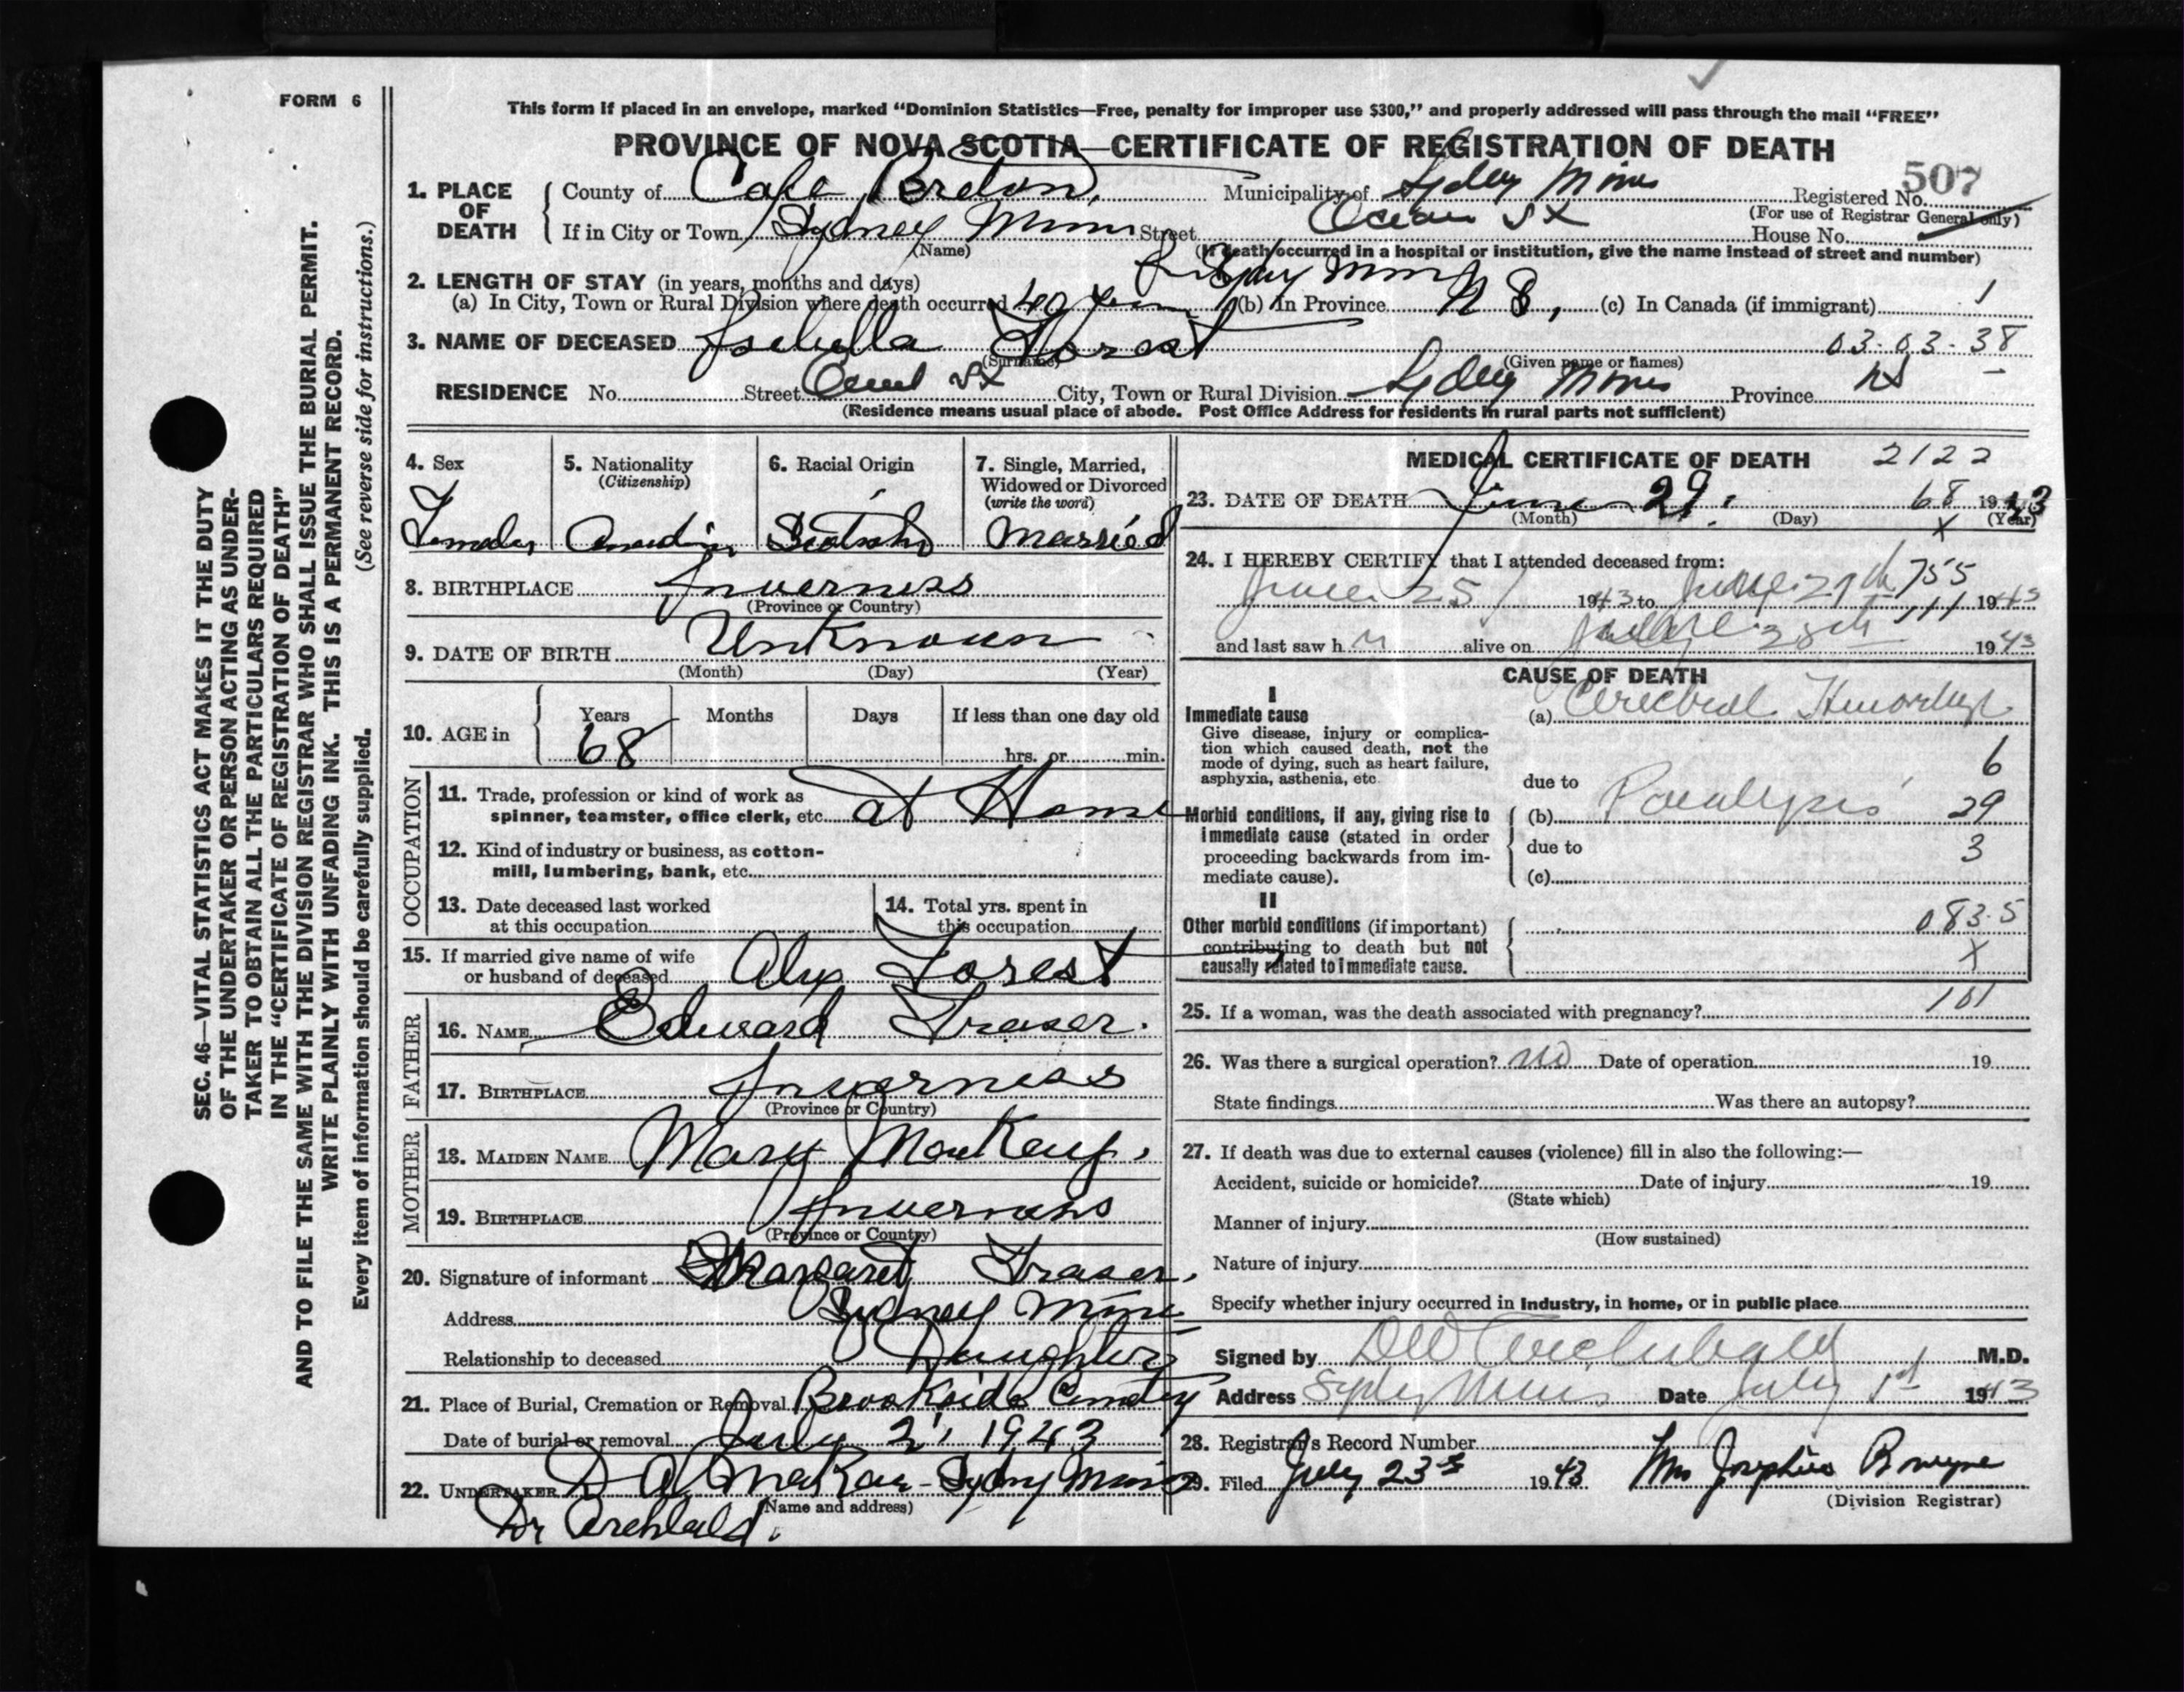 FORM 6
This form if placed in an envelope, marked “Dominion Statistics—Free, penalty for improper use $300,” and properly addressed will pass through the mail “FREE”
PROVINCE OF NOVA SCOTIA—CERTIFICATE OF REGISTRATION OF DEATH
507
1. PLACE OF DEATH
County of Cape Breton, Municipality of Sydney Mines Registered No.
(For use of Registrar General only)
If in City or Town Sydney Mines Street Ocean St House No.
(Name) (If death occurred in a hospital or institution, give the name instead of street and number)
2. LENGTH OF STAY (in years, months and days) Sydney Mines
(a) In City, Town or Rural Division where death occurred 40 years (b) In Province N S, (c) In Canada (if immigrant) 1
3. NAME OF DECEASED Isabella Forest 03-03-38
(Surname) (Given name or names)
RESIDENCE No. Street Ocean St City, Town or Rural Division Sydney Mines Province NS
(Residence means usual place of abode. Post Office Address for residents in rural parts not sufficient)
4. Sex
Female
5. Nationality
(Citizenship)
Canadian
6. Racial Origin
Scotch
7. Single, Married,
Widowed or Divorced
(write the word)
Married
8. BIRTHPLACE Inverness
(Province or Country)
9. DATE OF BIRTH Unknown
(Month) (Day) (Year)
10. AGE in
Years Months Days If less than one day old
68 hrs. or min.
OCCUPATION
11. Trade, profession or kind of work as
spinner, teamster, office clerk, etc. at Home
12. Kind of industry or business, as cotton-
mill, lumbering, bank, etc.
13. Date deceased last worked
at this occupation
14. Total yrs. spent in
this occupation
15. If married give name of wife
or husband of deceased Alex Forest
FATHER
16. NAME Edward Fraser.
17. BIRTHPLACE Inverness
(Province or Country)
MOTHER
18. MAIDEN NAME Mary MacKay.
19. BIRTHPLACE Inverness
(Province or Country)
20. Signature of informant Margaret Fraser,
Address Sydney Mines
Relationship to deceased Daughter
21. Place of Burial, Cremation or Removal Brookside Cemetery
Date of burial or removal July 2, 1943
22. UNDERTAKER D A MacKay - Sydney Mines
(Name and address)
Dr Archibald.
MEDICAL CERTIFICATE OF DEATH 2122
23. DATE OF DEATH June 29. 68 1943
(Month) (Day) (Year)
x
24. I HEREBY CERTIFY that I attended deceased from:
755
June 25 1943 to June 29th 1943
111
and last saw h alive on 28th 1943
CAUSE OF DEATH
I
Immediate cause
Give disease, injury or complica-
tion which caused death, not the
mode of dying, such as heart failure,
asphyxia, asthenia, etc.
(a) Cerebral Hemorrhage
6
due to
Morbid conditions, if any, giving rise to
immediate cause (stated in order
proceeding backwards from im-
mediate cause).
(b) Paralysis 29
due to 3
(c)
II
Other morbid conditions (if important)
contributing to death but not
causally related to immediate cause.
083.5
X
25. If a woman, was the death associated with pregnancy? 101
26. Was there a surgical operation? no Date of operation 19
State findings Was there an autopsy?
27. If death was due to external causes (violence) fill in also the following:—
Accident, suicide or homicide? Date of injury 19
(State which)
Manner of injury
(How sustained)
Nature of injury
Specify whether injury occurred in industry, in home, or in public place
Signed by DW Archibald M.D.
Address Sydney Mines Date July 1st 1943
28. Registrar's Record Number
29. Filed July 23rd 1943 Mrs Josephine
(Division Registrar)
SEC. 46—VITAL STATISTICS ACT MAKES IT THE DUTY
OF THE UNDERTAKER OR PERSON ACTING AS UNDER-
TAKER TO OBTAIN ALL THE PARTICULARS REQUIRED
IN THE “CERTIFICATE OF REGISTRATION OF DEATH”
AND TO FILE THE SAME WITH THE DIVISION REGISTRAR WHO SHALL ISSUE THE BURIAL PERMIT.
WRITE PLAINLY WITH UNFADING INK. THIS IS A PERMANENT RECORD.
Every item of information should be carefully supplied. (See reverse side for instructions.)